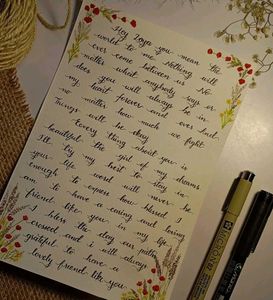 Hey Zoya you mean the
world to me Nothing will
ever come between us No
matter what anybody says or
does you will always be in
my heart forever and ever And
no matter how much we fight
Things will be okay
Every thing about you is
beautiful the girl of my dreams
I'll try my best to stay in
your life word in
enough to express how blessed I
am to have a caring and loving
friend like you in my life
I bless the day our paths
crossed and i will always
grateful to have a
lovely friend like you